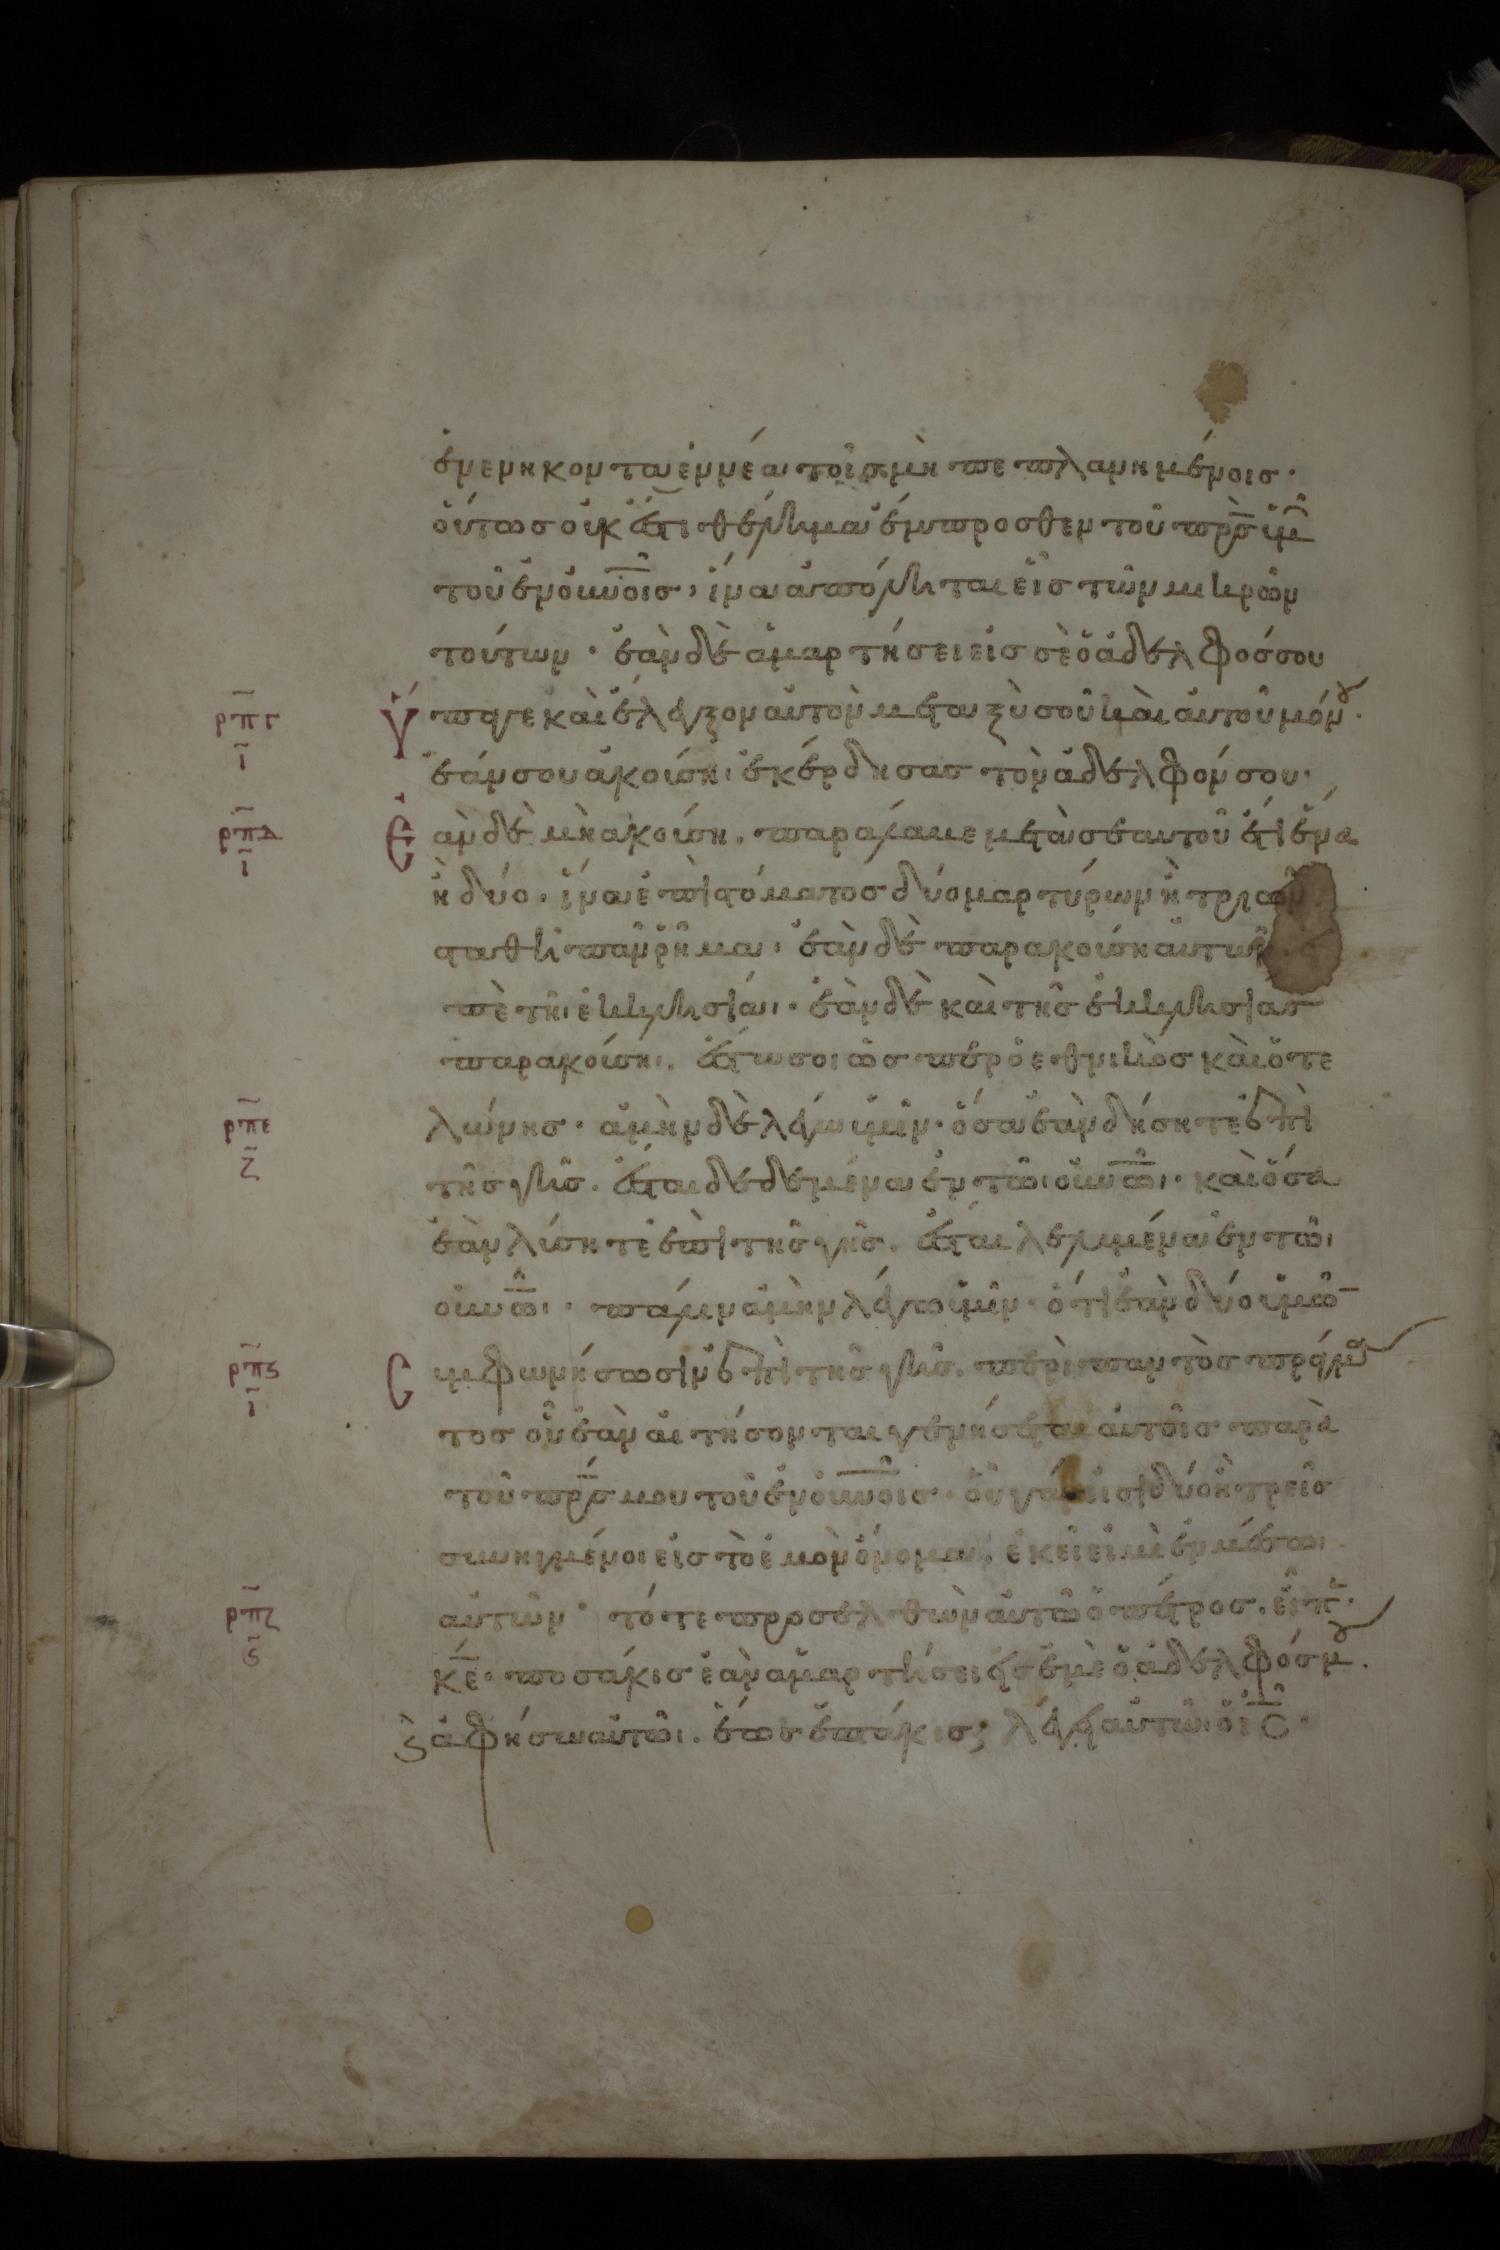 ἐνενηκονταεννέα τοῖς μὴ πεπλανημένοις·
οὕτως οὐκ ἔστι θέλημα ἔμπροσθεν τοῦ πρ̅ς ὑμ
τοῦ ἐν οὐνοις, ἵνα ἀπόληται εἷς τῶν μικρῶν
τούτων · ἐὰν δὲ ἁμαρτήσει εἰς σὲ ὁ ἀδελφός σου
ρπγ ι Ὕπαγε καὶ ἔλεγξον αὐτὸν μεταξὺ σοῦ καὶ αὐτοῦ μόνου·
ἐάν σου ἀκούσῃ, ἐκέρδησας τὸν ἀδελφόν σου·
ρπδ ι Ἐὰν δὲ μὴ ἀκούσῃ, παράλαμε μετὰ σεαυτοῦ ἔτι ἕνα
ἢ δύο, ἵνα ἐπὶ στόματος δύο μαρτύρων ἢ τριῶν
σταθῆ πᾶν ῥῆμα· ἐὰν δὲ παρακούσῃ αὐτῶν
πὲ τῆι ἐκκλησίαι· ἐὰν δὲ καὶ τῆς ἐκκλησίας
παρακούσηι, ἔστω σοι ὥσπερ ὁ ἐθνικὸς καὶ ὁ τε
ρπε ζ λώνης · ἀμὴν δὲ λέγω ὑμῖν· ὅσα ἐὰν δήσητε ἐπὶ
τῆς γῆς. ἔσται δεδεμένα ἐν τῶι οὐνῶι· καὶ ὅσα
ἐὰν λύσητε ἐπὶ τῆς γῆς. ἔσται λελυμένα ἐν τῶι
οὐνῶι· πάλιν ἀμὴν λέγω ὑμῖν· ὅτι ἐὰν δύο ὑμῶν
ρπς ι Συμφωνήσωσιν ἐπὶ τῆς γῆς. περὶ παντὸς πράγμα
τος οὗ ἐὰν αἰτήσονται γενήσεται αὐτοῖς παρὰ
τοῦ πρ̅ς μου τοῦ ἐν οὐνοις· οὗ γάρ εἰσι δύο ἢ τρεῖς
συνηγμένοι εἰς τὸ ἐμὸν ὄνομα, ἐκεῖ εἰμὶ ἐν μέσωι
ρπζ ς αὐτῶν· τότε προσελθὼν αὐτῶ ὁ πέτρος. εἶπ·
κ̅ε̅· ποσάκις ἐὰν ἁμαρτήσει εἰς ἐμὲ ὁ ἀδελφός μου.
καὶ ἀφήσω αὐτῶι. ἕως ἑπτάκις; λέγει αὐτῶι ὁ ι̅ς̅·